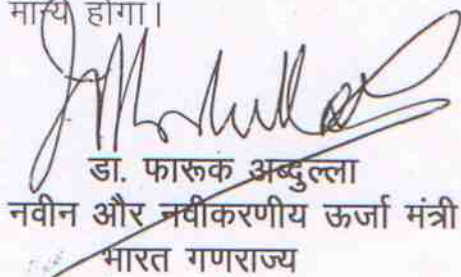 मान्य होगा।
डा. फारूक अब्दुल्ला
नवीन और नवीकरणीय ऊर्जा मंत्री
भारत गणराज्य